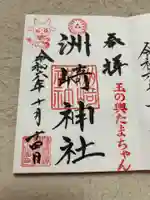 奉拝
玉の輿たまちゃん
洲崎神社
令和六年十月十四日